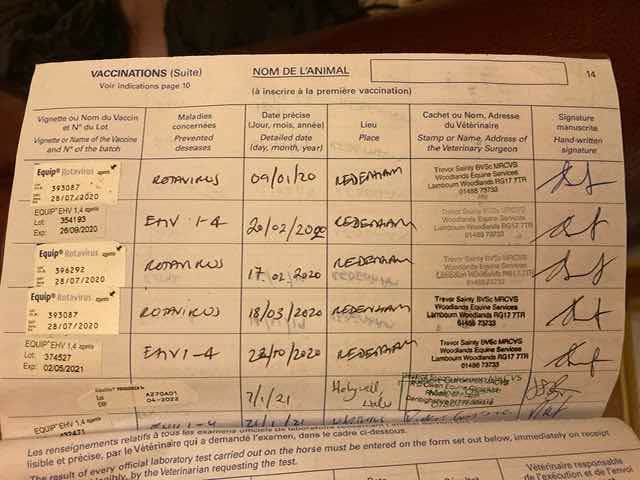 VACCINATIONS (Suite)
Voir indications page 10
NOM DE L'ANIMAL
(à inscrire à la première vaccination)
14
Vignette ou Nom du Vaccin
et N° du Lot
Vignette or Name of the Vaccine
and N° of the batch
Maladies
concernées
Prevented
diseases
Date précise
(Jour, mois, année)
Detailed date
(day, month, year)
Lieu
Place
Cachet ou Nom, Adresse
du Vétérinaire
Stamp or Name, Address of
the Veterinary Surgeon
Signature
manuscrite
Hand-written
signature
Equip® Rotavirus
393087
28/07/2020
ROTAVIRUS
09/01/20
REDENHAM
Trevor Sainty BVSc MRCVS
Woodlands Equine Services
Lambourn Woodlands RG17 7TR
01488 73733
EQUIP® EHV 1,4
Lot: 354193
Exp: 26/09/2020
EHV 1-4
20/02/2020
REDENHAM
Trevor Sainty BVSc MRCVS
Woodlands Equine Services
Lambourn Woodlands RG17 7TR
01488 73733
Equip® Rotavirus
396292
28/07/2020
ROTAVIRUS
17.02.2020
REDENHAM
Trevor Sainty BVSc MRCVS
Woodlands Equine Services
Lambourn Woodlands RG17 7TR
01488 73733
Equip® Rotavirus
393087
28/07/2020
ROTAVIRUS
18/03/2020
REDENHAM
Trevor Sainty BVSc MRCVS
Woodlands Equine Services
Lambourn Woodlands RG17 7TR
01488 73733
EQUIP® EHV 1,4
Lot: 374527
Exp: 02/05/2021
EHV 1-4
/10/2020
REDENHAM
Trevor Sainty BVSc MRCVS
Woodlands Equine Services
Lambourn Woodlands RG17 7TR
01488 73733
A270A01
04-2022
7/1/21
EQUIP® EHV 1,4
Les renseignements relatifs à tous les examens
lisible et précise, par le Vétérinaire qui a demandé l'examen, dans le cadre ci-dessous.
The result of every official laboratory test carried out on the horse must be entered on the form set out below, immediately on receipt
by the Veterinarian requesting the test.
Vétérinaire responsable
de l'exécution et de l'envoi